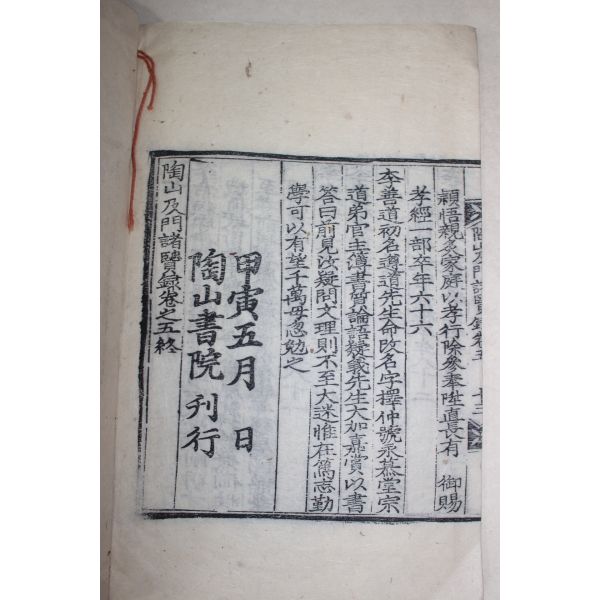 陶山及門諸賢錄卷五　十三
穎悟親炙家庭以孝行除參奉陞直長有　御賜
孝經一部卒年六十六
李善道初名遵道先生命改名字擇仲號永慕堂宗
道弟官主簿書質論語疑義先生大加嘉賞以書
答曰前見汝疑問文理則不至大迷惟在篤志勤
學可以有望千萬毋忽勉之
甲寅五月　日
陶山書院刊行
陶山及門諸賢錄卷之五終